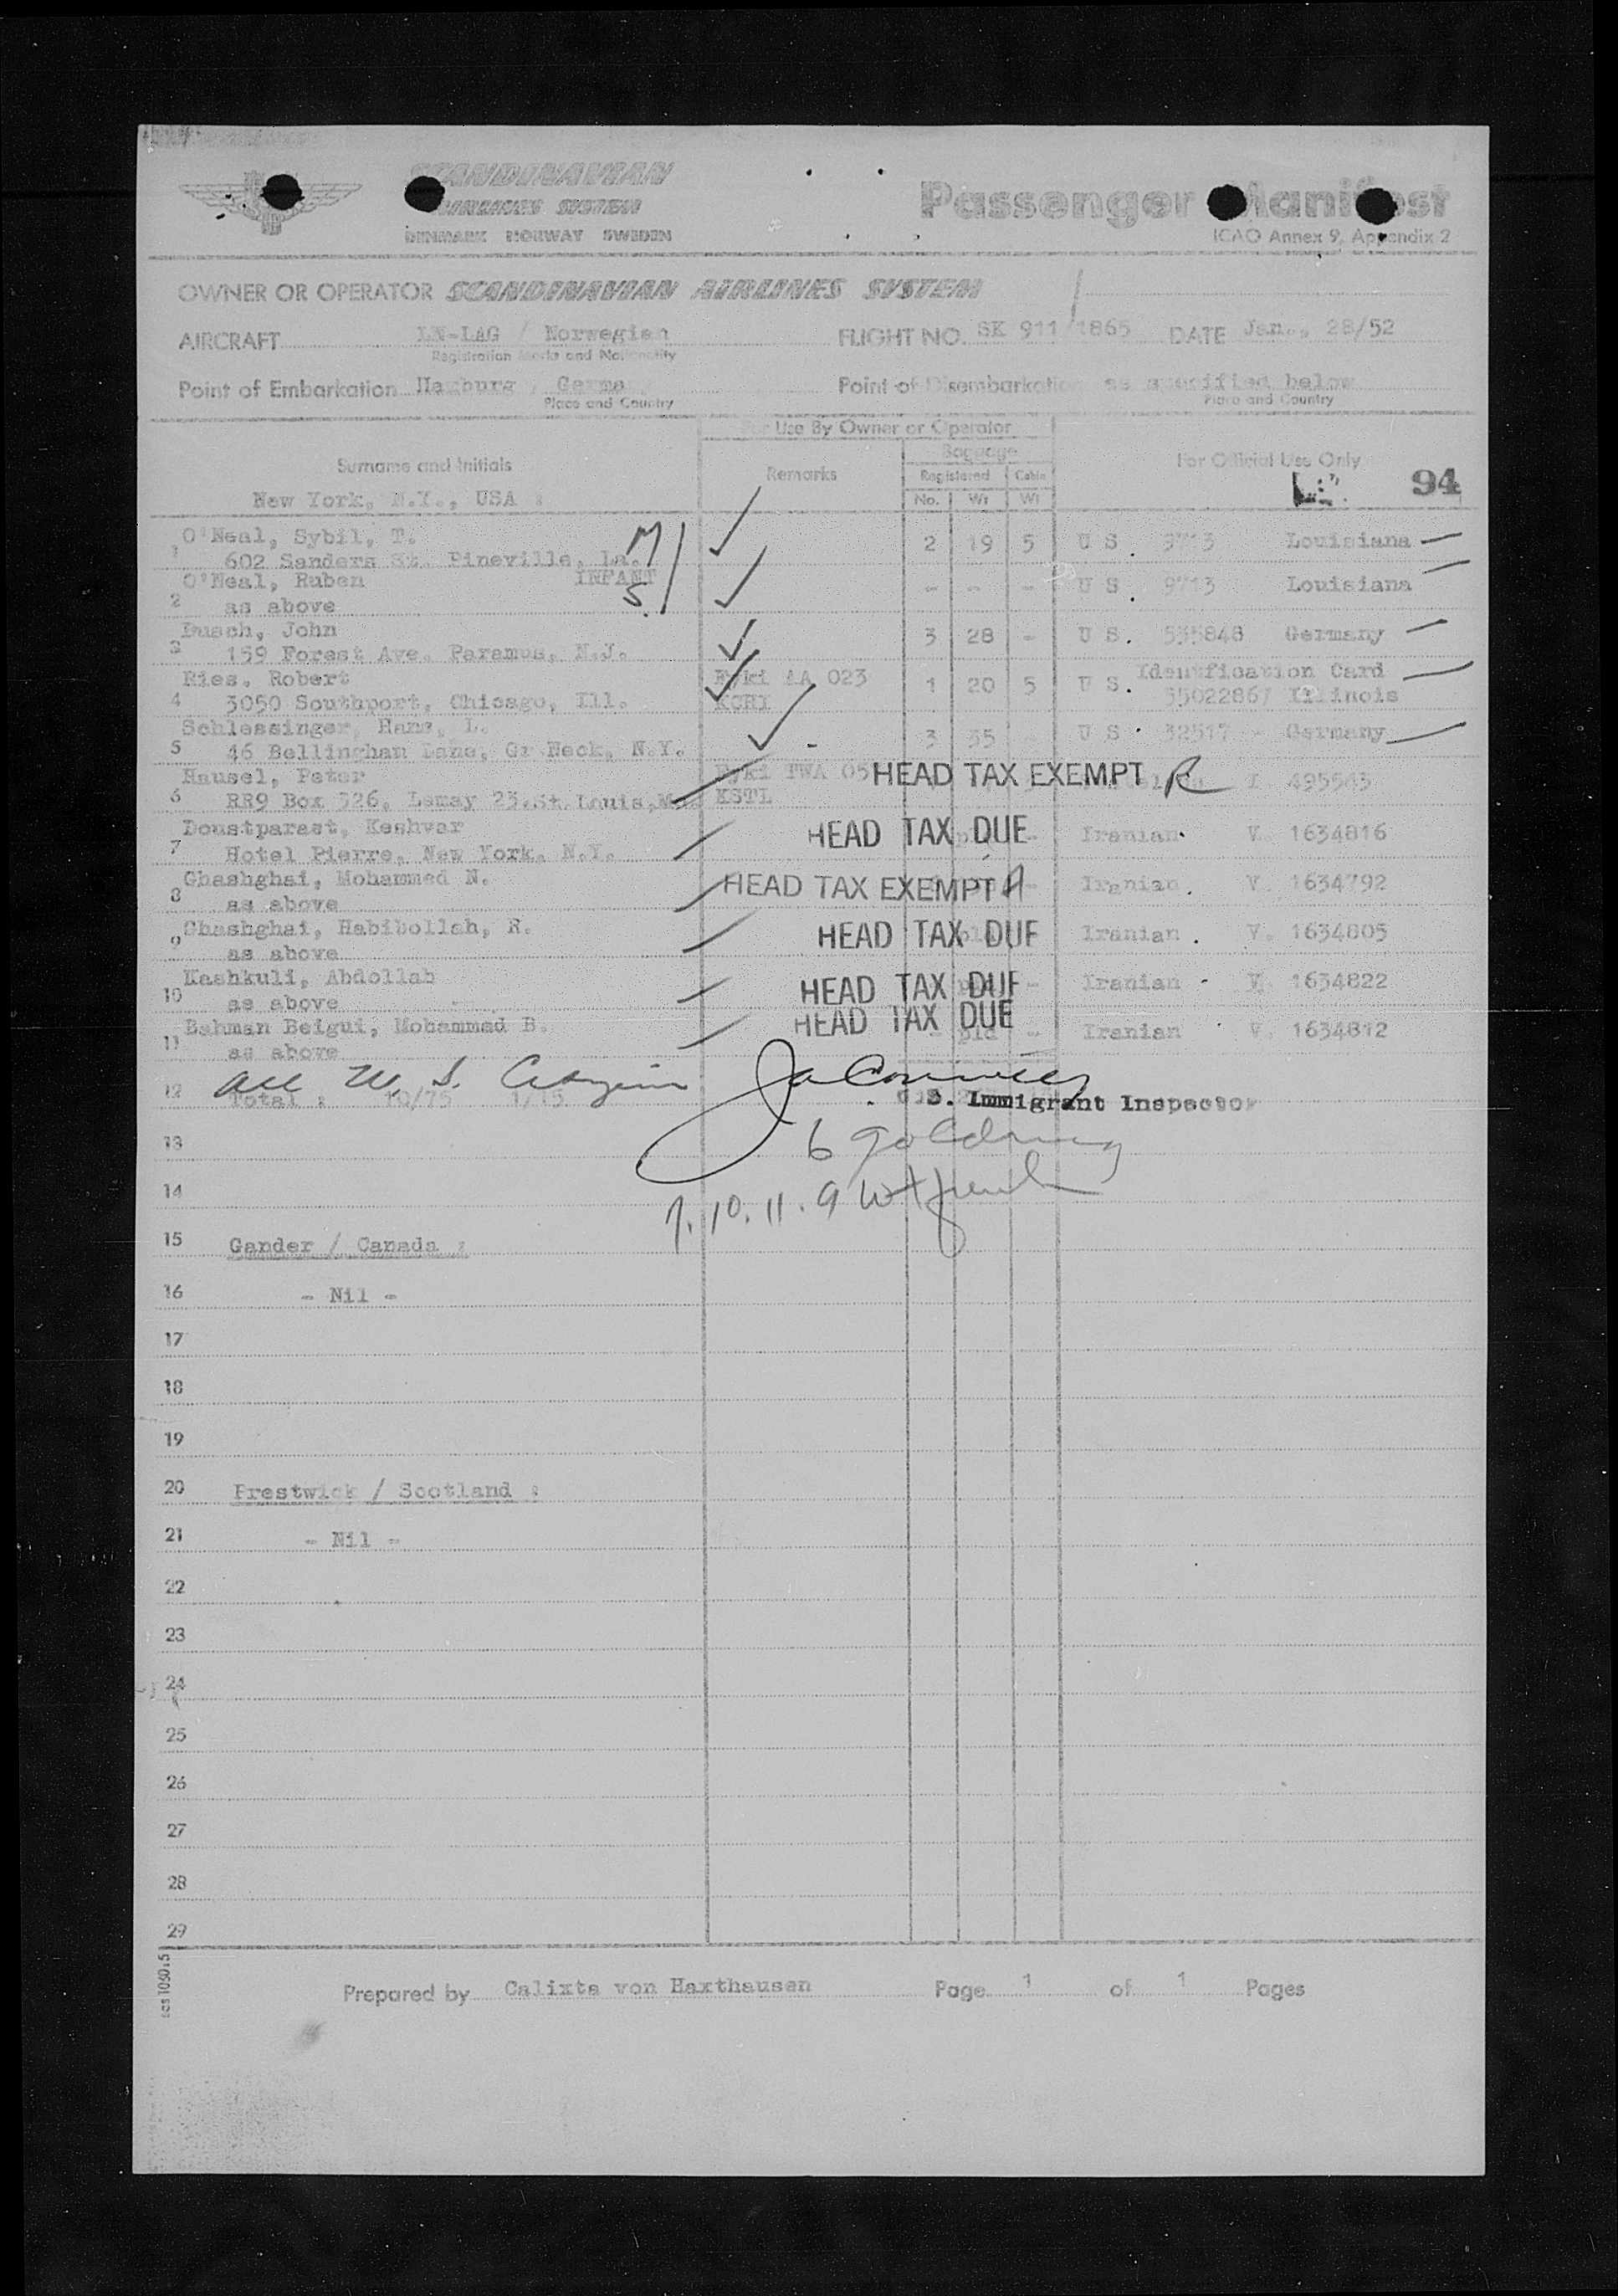 SCANDINAVIAN
AIRLINES SYSTEM
DENMARK NORWAY SWEDEN
Passenger Manifest
ICAO Annex 9, Appendix 2
OWNER OR OPERATOR SCANDINAVIAN AIRLINES SYSTEM
AIRCRAFT LN-LAG / Norwegian FLIGHT NO. SK 911/1865 DATE Jan., 28/52
Registration Marks and Nationality
Point of Embarkation Hamburg, Germany Point of Disembarkation as specified below
Place and Country Place and Country
For Use By Owner or Operator
Surname and Initials Remarks Baggage For Official Use Only
Registered Cabin
No. Wt Wt
94
New York, N.Y., USA :
O'Neal, Sybil, T. M
1 602 Sanders St. Pineville, La. 2 19 5 U S. 9713 Louisiana
O'Neal, Ruben INFANT
2 as above S. - - - U S. 9713 Louisiana
Busch, John
3 159 Forest Ave. Paramus, N.J. 3 28 - U S. 535848 Germany
Ries, Robert Ryki AA 023 Identfication Card
4 3050 Southport, Chicago, Ill. KCHI 1 20 5 U S. 55022867 Illinois
Schlessinger, Hans, L.
5 46 Bellingham Lane, Gr Neck, N.Y. 3 35 U S. 32517 - Germany
Hausel, Peter Ryki TWA 05 HEAD TAX EXEMPT R
6 RR9 Box 326, Lemay 23. St. Louis, Mo. KSTL I 495563
Doustparast, Keshver HEAD TAX DUE
7 Hotel Pierre, New York, N.Y. Iranian V. 1634816
Ghashghai, Mohammed N. HEAD TAX EXEMPT A
8 as above Iranian. V. 1634792
Ghashghai, Habibollah, R. HEAD TAX DUE
9 as above Iranian. V. 1634805
Kashkuli, Abdollah HEAD TAX DUE
10 as above - Iranian V. 1634822
Bahman Beigui, Mohammad B. HEAD TAX DUE
11 as above - pld - Iranian V. 1634812
All U. S. Citizens
12 Total : 10/75 1/15
Immigrant Inspector
13 6 Goldring
14 7. 10. 11. 9
15 Gander / Canada :
16 - Nil -
17
18
19
20 Prestwick / Scotland :
21 - Nil -
22
23
24
25
26
27
28
29
sas 1050:5
Prepared by Calixta von Haxthausen Page 1 of 1 Pages